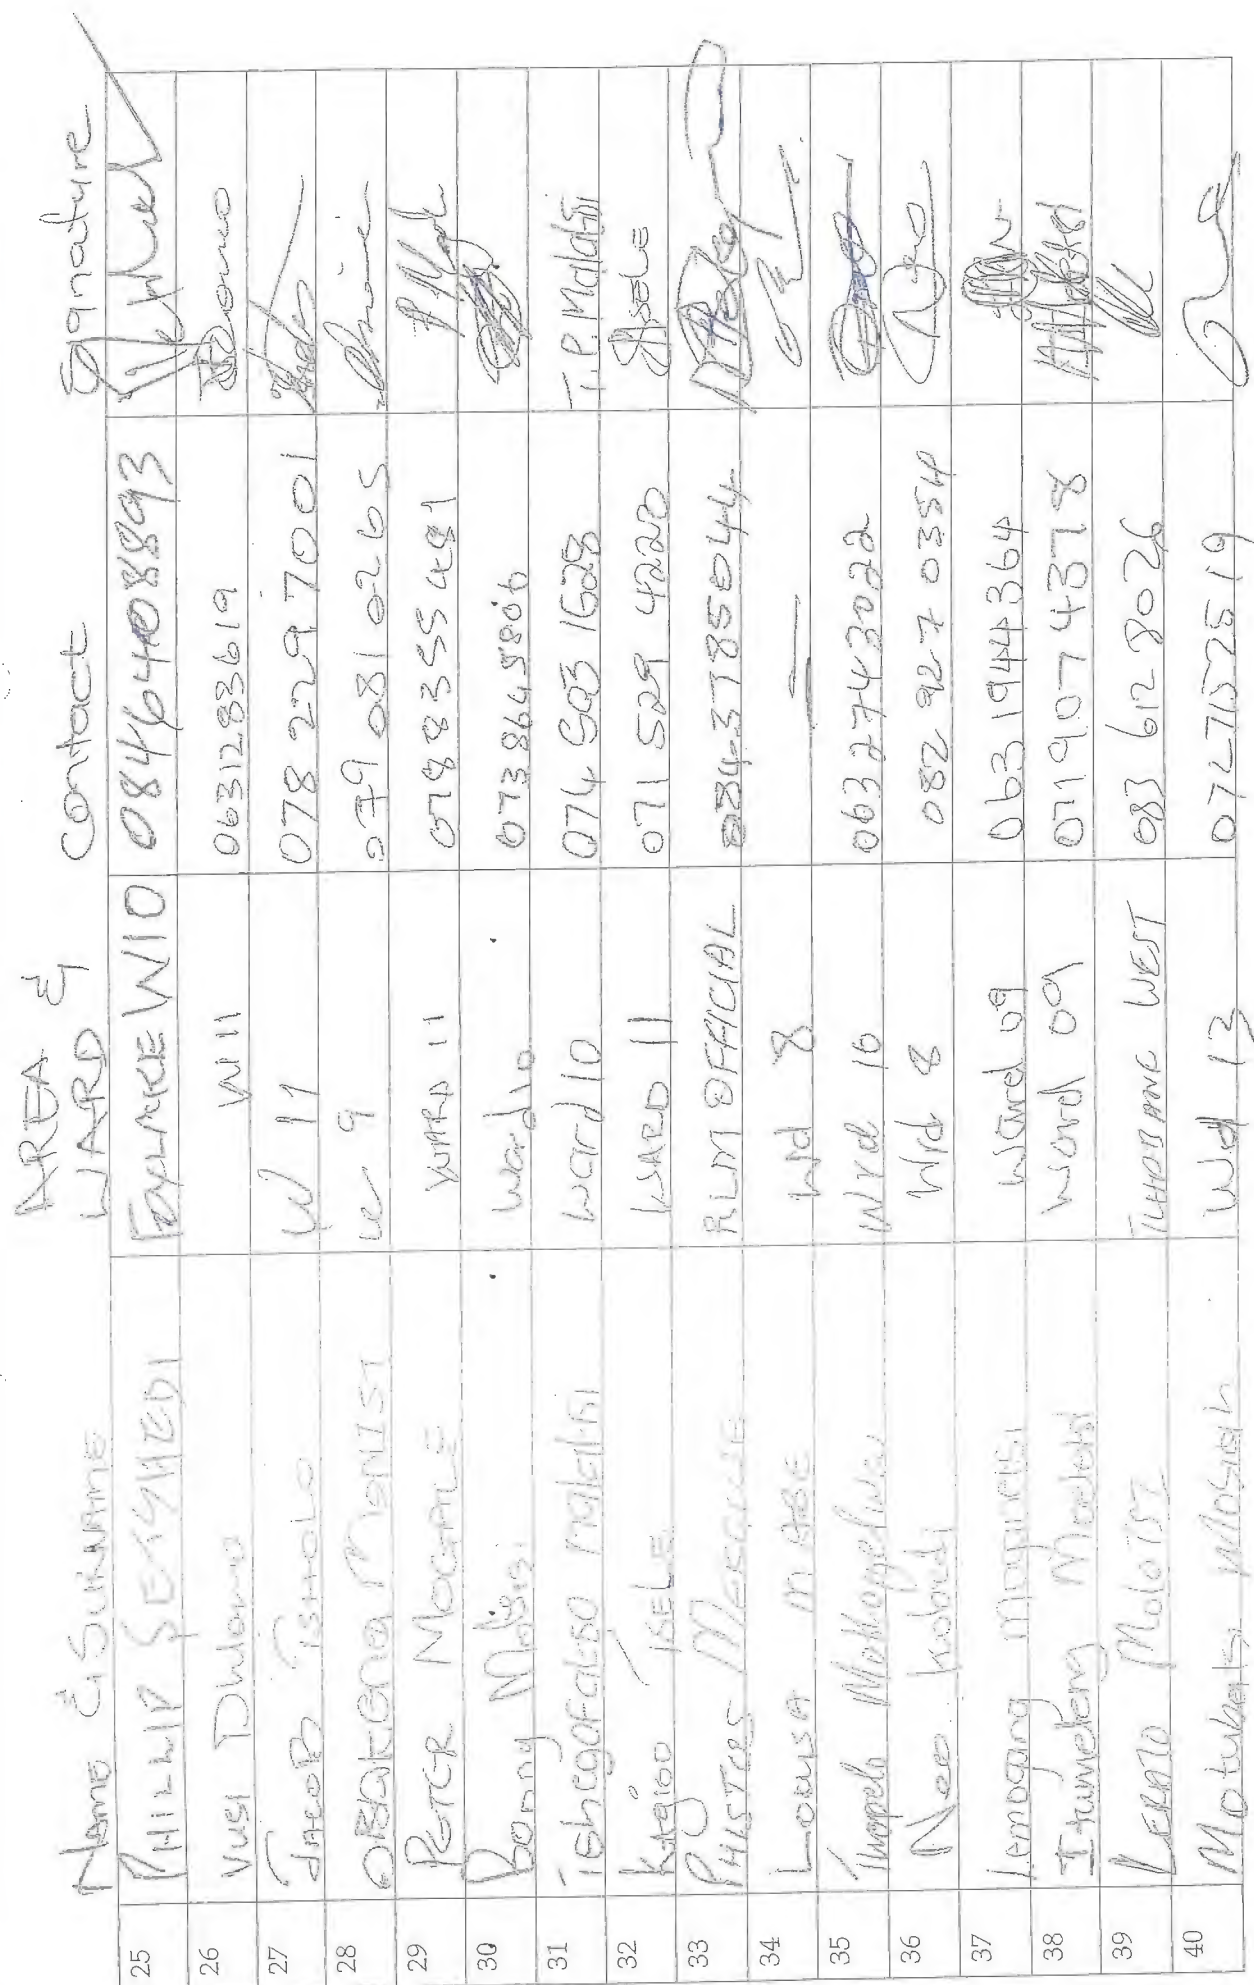 Name & Surname AREA & WARD Contact Signature
25 PHILLIP SEKGHEDI FOXLAKE W10 0846408893
26 Vusi Dhlamo W11 0631283619
27 JACOB TSHOLO W 11 078 229 7001
28 W 9 079 081 0265
29 PETER MOGALE WARD 11 0788355481
30 Bonny Molisi Ward 10 0738645806
31 Tshegofatso Malatsi Ward 10 074 593 1628 T.P. Malatsi
32 Kagiso ISELE WARD 11 071 529 4220 ISELE
33 RLM OFFICIAL 0843785044
34 LOUISA MABE Wd 8 —
35 Wrd 10 0632743022
36 Neo Wrd 8 082 927 0354
37 Lemogang Ward 09 0631944364
38 Itumeleng Ward 09 0719074378
39 LERATO Moloisi TLHABANE WEST 083 612 8026
40 Wd 13 0727152519